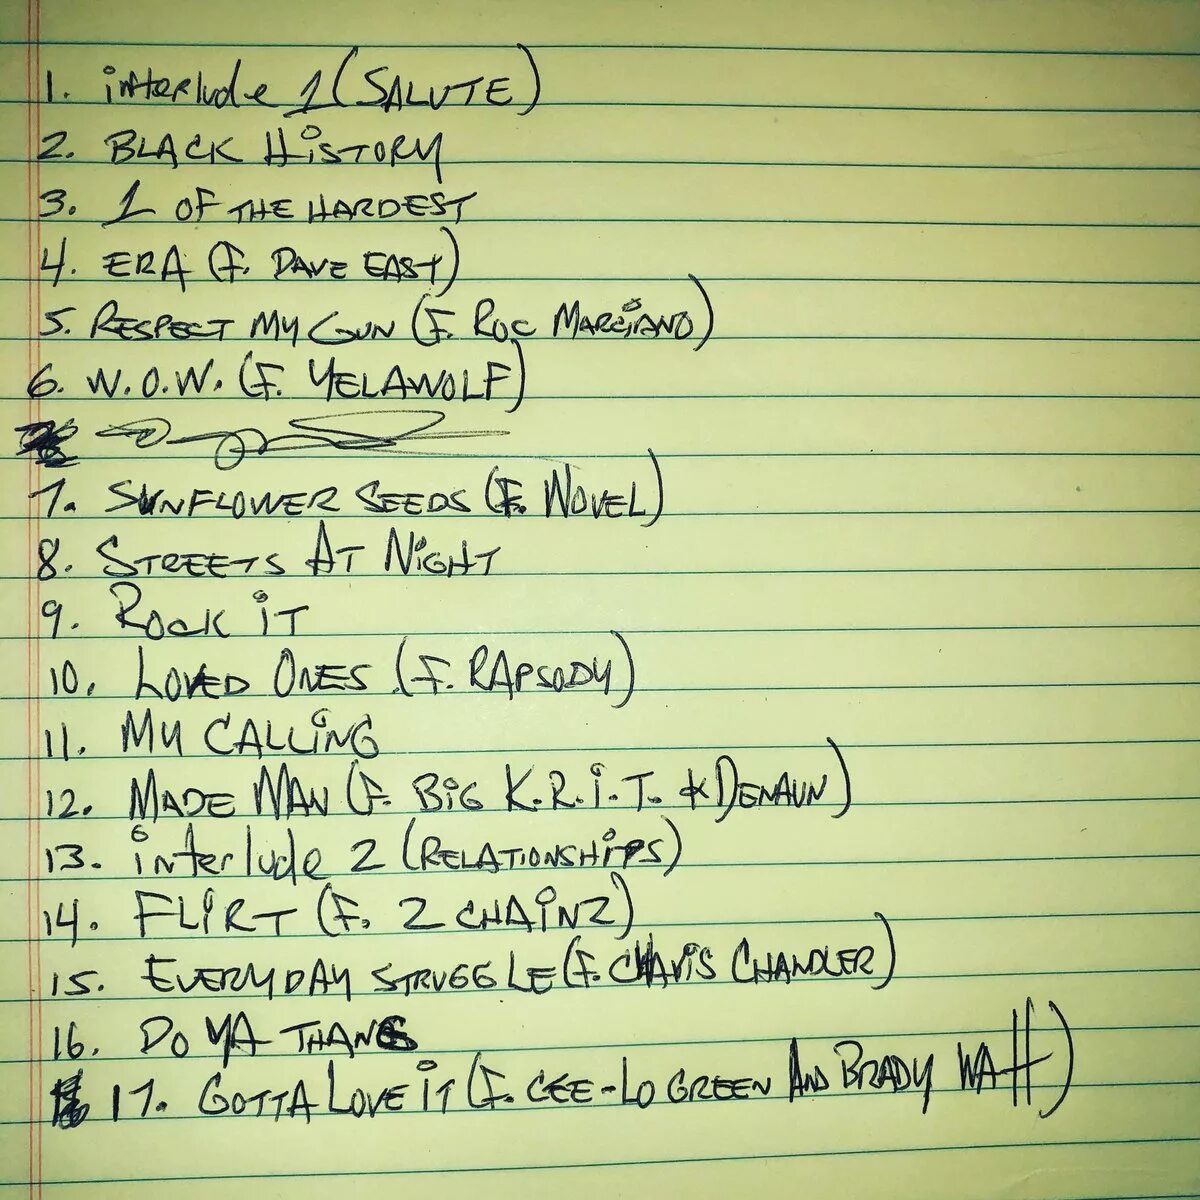 1. interlude 1 (SALUTE)
2. BLACK HiSTORY
3. 1 OF THE HARDEST
4. ERA (F. DAVE EAST)
5. RESPECT MY GUN (F. ROC MARCiANO)
6. W.O.W. (F. YELAWOLF)
7. SUNFLOWER SEEDS (F. NOVEL)
8. STREETS AT NiGHT
9. ROCK iT
10. LOVED ONES (F. RAPSODY)
11. MY CALLiNG
12. MADE MAN (F. BiG K.R.i.T. & DENAUN)
13. interlude 2 (RELATIONSHiPS)
14. FLiRT (F. 2 CHAiNZ)
15. EVERYDAY STRUGGLE (F. CHAViS CHANDLER)
16. DO YA THANG
17. GOTTA LOVE iT (F. CEE-LO GREEN AND BRADY WATT)